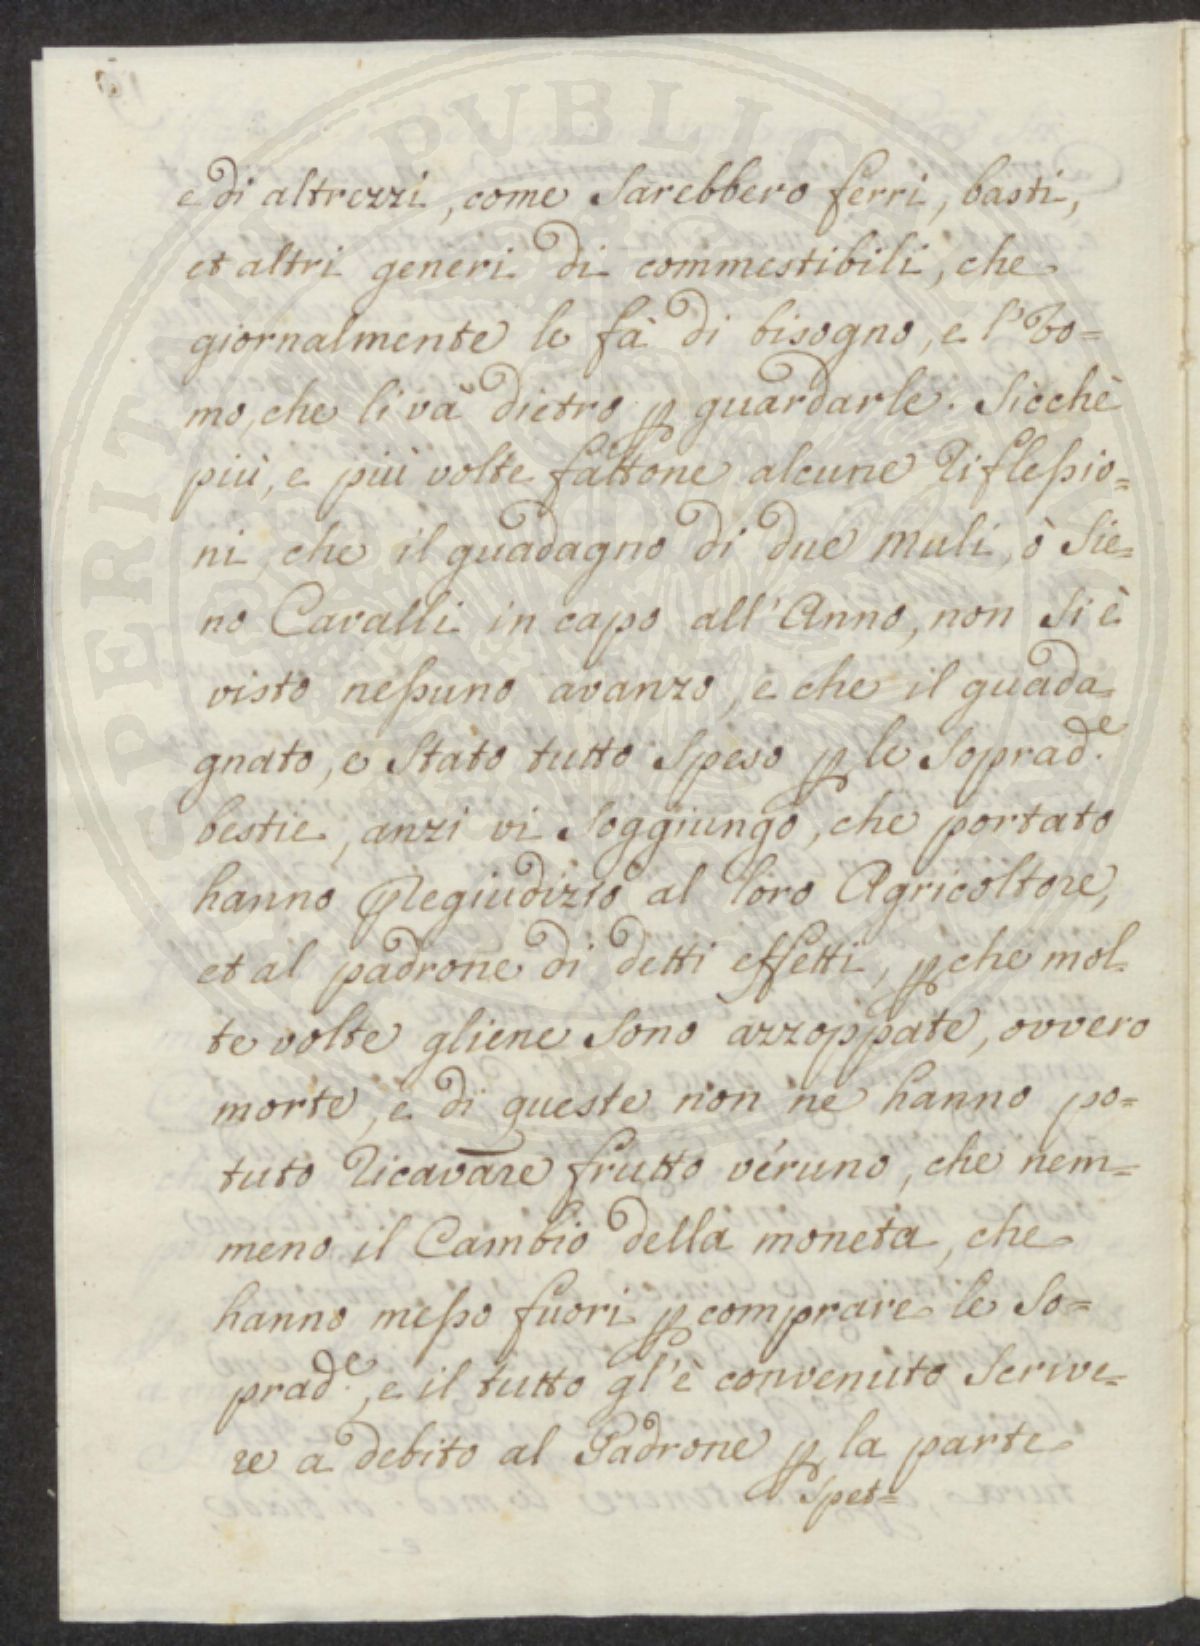 e di altrezzi, come sarebbero ferri, basti,
et altri generi di commestibili, che
giornalmente le fà di bisogno, e l'Vo=
mo, che li và dietro ꝑ guardarle. Sicchè
più, e più volte fattone alcune riflessio=
ni, che il guadagno di due Muli, ò sie=
no Cavalli in capo all'Anno, non si è
visto nessuno avanzo, e che il guada
gnato, e stato tutto speso ꝑ le soprad.e
bestie, anzi vi soggiungo, che portato
hanno pregiudizio al loro Agricoltore,
et al padrone di detti effetti, ꝑche mol
te volte gliene sono azzoppate, ovvero
morte, e di queste non ne hanno po=
tuto ricavare frutto veruno, che nem=
meno il Cambio della moneta, che
hanno messo fuori ꝑ comprare le so=
prad.e, e il tutto gl'è convenuto scrive=
re a debito al Padrone ꝑ la parte
spet=